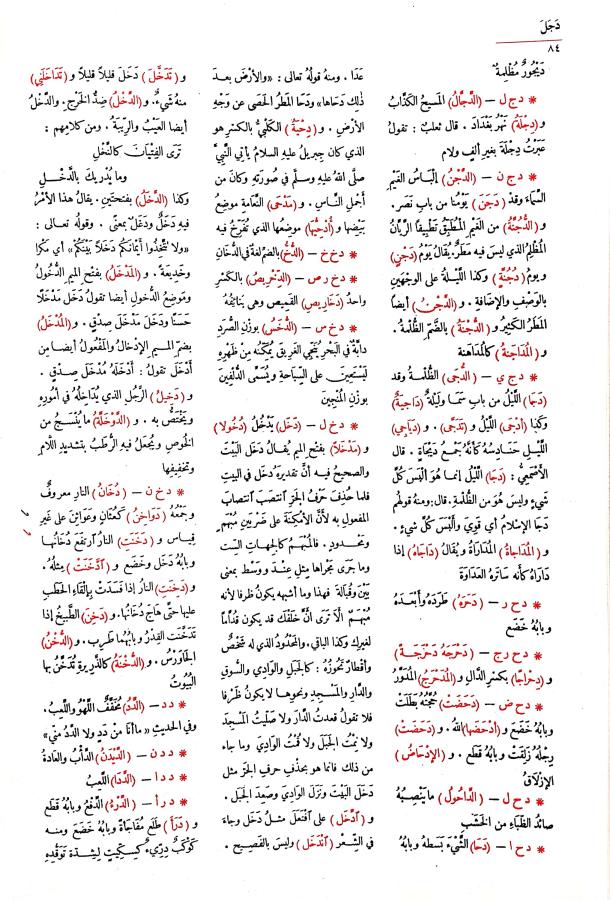 دَجَلَ
٨٤
دَيْجُورٌ مُظْلِمَةٌ
* د ج ل — (الدَّجَّالُ) المَسِيحُ الكَذَّابُ
و (دِجْلَةُ) نَهْرُ بَغْدَادَ . قال ثعلبٌ : تقولُ
عَبَرْتُ دِجْلَةَ بغيرِ ألِفٍ ولامٍ
* د ج ن — (الدَّجْنُ) إلْبَاسُ الغَيْمِ
السَّمَاءَ وقدْ (دَجَنَ) يَوْمُنا من بابِ نَصَرَ .
و (الدُّجُنَّةُ) من الغَيْمِ المُطَبِّقُ تَطْبِيقاً الرَّيَّانُ
المُظْلِمُ الذي ليسَ فيه مَطَرٌ . يقالُ يَوْمُ (دَجْنٍ)
ويومُ (دُجُنَّةٍ) وكذا اللَّيْلَةُ على الوَجْهَيْنِ
بالوَصْفِ والإضَافَةِ . و (الدَّجْنُ) أيضاً
المَطَرُ الكَثِيرُ و (الدُّجْنَةُ) بالضَّمِّ الظُّلْمَةُ .
و (المُدَاجَنَةُ) كالمُدَاهَنة
* د ج ي — (الدُّجَى) الظُّلْمَةُ وقد
(دَجَا) اللَّيْلُ من بابِ سَمَا ولَيْلَةٌ (دَاجِيَةٌ)
وكذا (أدْجَى) اللَّيْلُ و (تَدَجَّى) . و (دَيَاجِي)
اللَّيْلِ حَنَادِسُهُ كأنَّهُ جَمْعُ دَيْجَاةٍ . قال
الأَصْمَعِيُّ : (دَجَا) اللَّيْلُ إنما هُوَ أَلْبَسَ كُلَّ
شيءٍ وليسَ هُوَ من الظُّلْمَةِ . قال : ومنه قولهم
دَجَا الإسْلَامُ أي قَوِيَ وأَلْبَسَ كُلَّ شيءٍ .
و (المُدَاجَاةُ) المُدَارَاةُ و يُقالُ (دَاجَاهُ) إذا
دَارَاهُ كأنه سَاتَرَهُ العَدَاوَةَ
* د ح ر — (دَحَرَهُ) طَرَدَه وأبْعَدَهُ
وبابُهُ خَضَعَ
* د ح ر ج — (دَحْرَجَهُ دَحْرَجَةً)
و (دِحْرَاجاً) بكسرِ الدَّالِ و (المُدَحْرَجُ) المُدَوَّرُ
* د ح ض — (دَحَضَتْ) حُجَّتُهُ بَطَلَتْ
وبابُهُ خَضَعَ و (أدْحَضَها) اللهُ . و (دَحَضَتْ)
رِجْلُهُ زَلِقَتْ وبابُهُ قَطَعَ . و (الإدْحَاضُ)
الإزْلاَقُ
* د ح ل — (الدَّاحُولُ) ما يَنْصِبُهُ
صائدُ الظِّبَاءِ من الخَشَبِ
* د ح ا — (دَحَا) الشَّيْءَ بَسَطَهُ وبابُهُ
عَدَا . ومنه قولُهُ تعالى : «والأَرْضَ بعدَ
ذلكَ دَحَاها» ودَحَا المَطَرُ الحَصَى عن وَجْهِ
الأَرْضِ . و (دِحْيَةُ) الكَلْبِيُّ بالكسرِ هو
الذي كان جِبريلُ عليهِ السلامُ يأتي النَّبِيَّ
صلى اللهُ عليهِ وسلَّم في صُورَتِهِ وكانَ من
أَجْمَلِ النَّاسِ . و (مَدْحَى) النَّعَامةِ موضِعُ
بَيْضِها و (أُدْحِيُّهَا) موضِعُها الذي تُفَرِّخُ فيه
* د خ خ — (الدُّخُّ) بالضمِّ لغةٌ في الدُّخَانِ
* د خ ر ص — (الدِّخْرِيصُ) بالكَسْرِ
واحدُ (دَخَارِيصِ) القَمِيصِ وهي بَنَائِقُهُ
* د خ س — (الدُّخَسُ) بوزنِ الصُّرَدِ
دابَّةٌ في البَحْرِ يُنَجِّي الغَرِيقَ يُمَكِّنُهُ مِنْ ظَهْرِهِ
لِيَسْتَعِينَ على السِّبَاحةِ ويُسَمَّى الدُّلْفِينَ
بوزنِ المُنْجِينَ
* د خ ل — (دَخَلَ) يَدْخُلُ (دُخُولا)
و (مَدْخَلاً) بفتحِ الميمِ يُقالُ دَخَلَ البَيْتَ
والصحيحُ فيهِ أنَّ تقديرَهُ دَخَلَ في البيتِ
فلما حُذِفَ حَرْفُ الجَرِّ انْتَصَبَ انْتِصَابَ
المفعولِ بهِ لأَنَّ الأَمْكِنَةَ على ضَرْبَيْنِ مُبْهَمٍ
ومَحْدُودٍ . فالمُبْهَمُ كالجِهَاتِ السِّت
وما جَرَى مَجْرَاها مثلِ عِنْدَ ووَسْطَ بمعنى
بَيْنَ وقُبَالَةَ فهذا وما أشبهَهُ يكونُ ظرفا لأنه
مُبْهَمٌ أَلَا تَرَى أنَّ خَلْفَكَ قد يكون قُدَّاماً
لغيرِكَ وكذا الباقي . والمَحْدُودُ الذي له شَخْصٌ
وأقْطَارٌ تَحُوزُهُ : كالجَبَلِ والوَادِي والسُّوقِ
والدَّارِ والمَسْجِدِ ونحوِها لا يكونُ ظَرْفا
فلا تقولُ قعدتُ الدَّارَ ولا صَلَّيتُ المَسْجِدَ
ولا نِمْتُ الجَبَلَ ولا قُمْتُ الوَادِيَ وما جاء
من ذلكَ فإنما هو بحذفِ حرفِ الجَرِّ مثل
دَخَلَ البَيْتَ ونَزَلَ الوَادِيَ وصَعِدَ الجَبَلَ .
و (ادَّخَلَ) على افْتَعَلَ مثلُ دَخَلَ وجاءَ
في الشِّعْرِ (انْدَخَلَ) وليسَ بالفَصِيحِ .
و (تَدَخَّلَ) دَخَلَ قليلاً قليلاً و (تَدَاخَلَنِي)
منه شيءٌ . و (الدَّخْلُ) ضِدُّ الخَرْجِ . والدَّخْلُ
أيضا العَيْبُ والرِّيبَةُ . ومن كلامِهِم :
تَرَى الفِتْيَانَ كالنَّخْلِ
وما يُدْرِيكَ بالدَّخْلِ
وكذا (الدَّخَلُ) بفتحتينِ . يقالُ هذا الأَمْرُ
فيه دَخَلٌ ودَغَلٌ بمعنًى . وقولُه تعالى :
«ولا تَتَّخِذُوا أَيْمَانَكُم دَخَلاً بَيْنَكُمْ» أي مَكْرا
وخَدِيعَةً . و (المَدْخَلُ) بفتحِ الميمِ الدُّخُولُ
وموضِعُ الدُّخولِ أيضا تقولُ دَخَل مَدْخَلًا
حَسَنًا ودَخَلَ مَدْخَلَ صِدْقٍ . و (المُدْخَلُ)
بضمِّ الميمِ الإدْخَالُ والمَفْعُولُ أيضا من
أَدْخَلَ تقولُ : أَدْخَلَهُ مُدْخَلَ صِدْقٍ .
و (دَخِيلُ) الرَّجُلِ الذي يُدَاخِلُهُ في أُمُورِهِ
ويَخْتَصُّ به . و (الدَّوْخَلَّةُ) ما يُنْسَجُ من
الخُوصِ ويُجْعَلُ فيه الرُّطَبُ بتشديدِ اللامِ
وتخفيفِها
* د خ ن — (دُخَانُ) النارِ معروفٌ
وجَمْعُهُ (دَوَاخِنُ) كعُثَانٍ وعَوَاثِنَ على غيرِ
قِياس و (دَخَنَتِ) النارُ ارتفعَ دُخَانُها
وبابُهُ دَخَلَ وخَضَعَ و (ادَّخَنَتْ) مِثْلُهُ .
و (دَخِنَتِ) النارُ إذا فَسَدَتْ بإلْقَاءِ الحَطَبِ
عليها حتَّى هَاجَ دُخَانُها . و (دَخِنَ) الطَّبِيخُ إذا
تَدَخَّنَتِ القِدْرُ وبابُهُما طَرِبَ . و (الدُّخْنُ)
الجَاوَرْسُ . و (الدُّخْنَةُ) كالذَّرِيرَةِ تُدَخَّنُ بها
البُيُوتُ
* د د — (الدَّدُ) مُخَفَّفٌ اللَّهْوُ واللَّعِبُ .
وفي الحديثِ «ما أنَا مِنْ دَدٍ ولا الدَّدُ مِنِّي»
* د د ن — (الدَّيْدَنُ) الدَّأْبُ والعَادَةُ
* د د ا — (الدَّدَا) اللَّعِبُ
* د ر أ — (الدَّرْءُ) الدَّفْعُ وبابُهُ قَطَعَ
و (دَرَأَ) طَلَعَ مُفَاجَأَةً وبابُهُ خَضَعَ ومنه
كَوْكَبٌ دِرِّيءٌ كسِكِّيتٍ لِشِدَّةِ تَوَقُّدِهِ